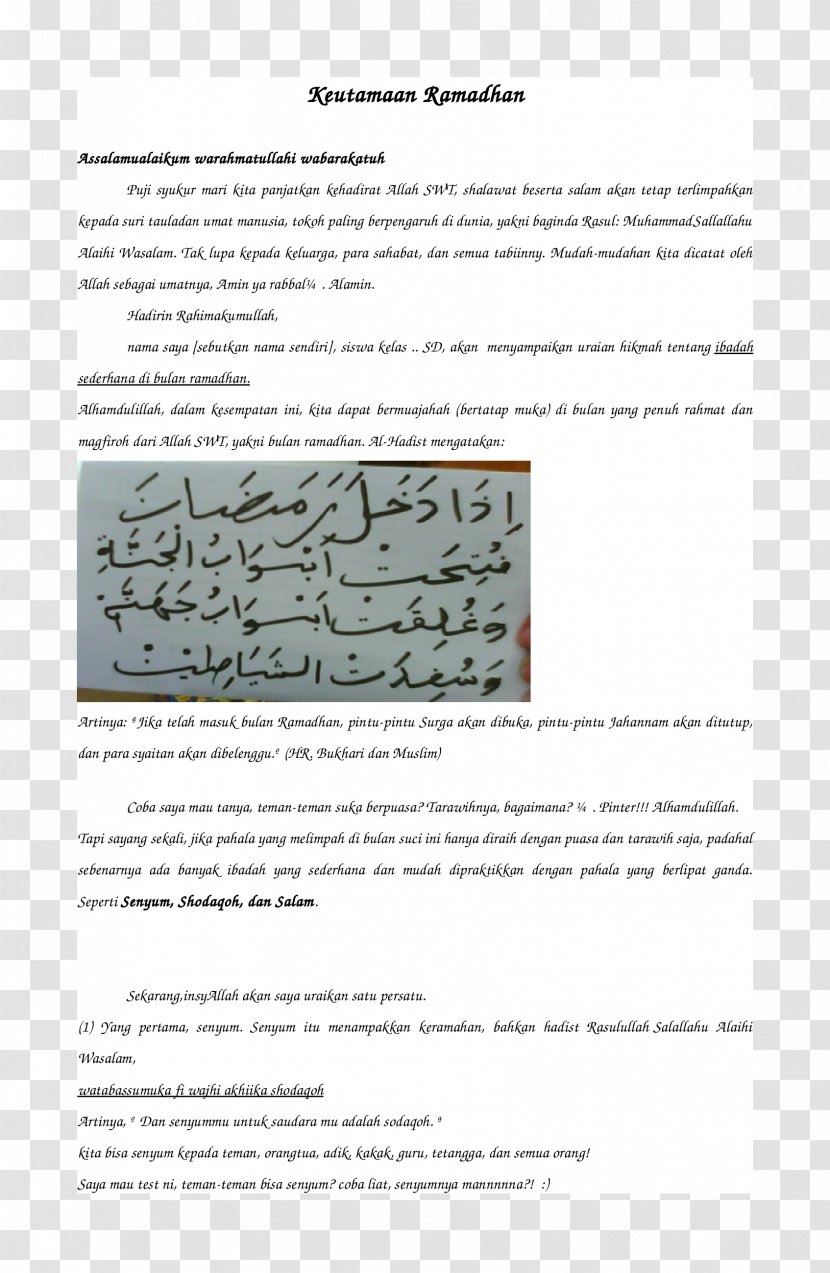 Keutamaan Ramadhan
Assalamualaikum warahmatullahi wabarakatuh
Puji syukur mari kita panjatkan kehadirat Allah SWT, shalawat beserta salam akan tetap terlimpahkan
kepada suri tauladan umat manusia, tokoh paling berpengaruh di dunia, yakni baginda Rasul: MuhammadSallallahu
Alaihi Wasalam. Tak lupa kepada keluarga, para sahabat, dan semua tabiinny. Mudah-mudahan kita dicatat oleh
Allah sebagai umatnya, Amin ya rabbal¼ . Alamin.
Hadirin Rahimakumullah,
nama saya [sebutkan nama sendiri], siswa kelas .. SD, akan menyampaikan uraian hikmah tentang ibadah
sederhana di bulan ramadhan.
Alhamdulillah, dalam kesempatan ini, kita dapat bermuajahah (bertatap muka) di bulan yang penuh rahmat dan
magfiroh dari Allah SWT, yakni bulan ramadhan. Al-Hadist mengatakan:
إِذَا دَخَلَ رَمَضَانَ
فُتِحَتْ أَبْوَابُ الْجَنَّةِ
وَغُلِقَتْ اَبْوَابُ جَهَنَّمَ
وَسُفِدَتْ الشَّيَاطِيْنْ
Artinya: ªJika telah masuk bulan Ramadhan, pintu-pintu Surga akan dibuka, pintu-pintu Jahannam akan ditutup,
dan para syaitan akan dibelenggu.º (HR. Bukhari dan Muslim)
Coba saya mau tanya, teman-teman suka berpuasa? Tarawihnya, bagaimana? ¼ . Pinter!!! Alhamdulillah.
Tapi sayang sekali, jika pahala yang melimpah di bulan suci ini hanya diraih dengan puasa dan tarawih saja, padahal
sebenarnya ada banyak ibadah yang sederhana dan mudah dipraktikkan dengan pahala yang berlipat ganda.
Seperti Senyum, Shodaqoh, dan Salam.
Sekarang,insyAllah akan saya uraikan satu persatu.
(1) Yang pertama, senyum. Senyum itu menampakkan keramahan, bahkan hadist Rasulullah Salallahu Alaihi
Wasalam,
watabassumuka fi wajhi akhiika shodaqoh
Artinya, º Dan senyummu untuk saudara mu adalah sodaqoh. ª
kita bisa senyum kepada teman, orangtua, adik, kakak, guru, tetangga, dan semua orang!
Saya mau test ni, teman-teman bisa senyum? coba liat, senyumnya mannnnna?! :)